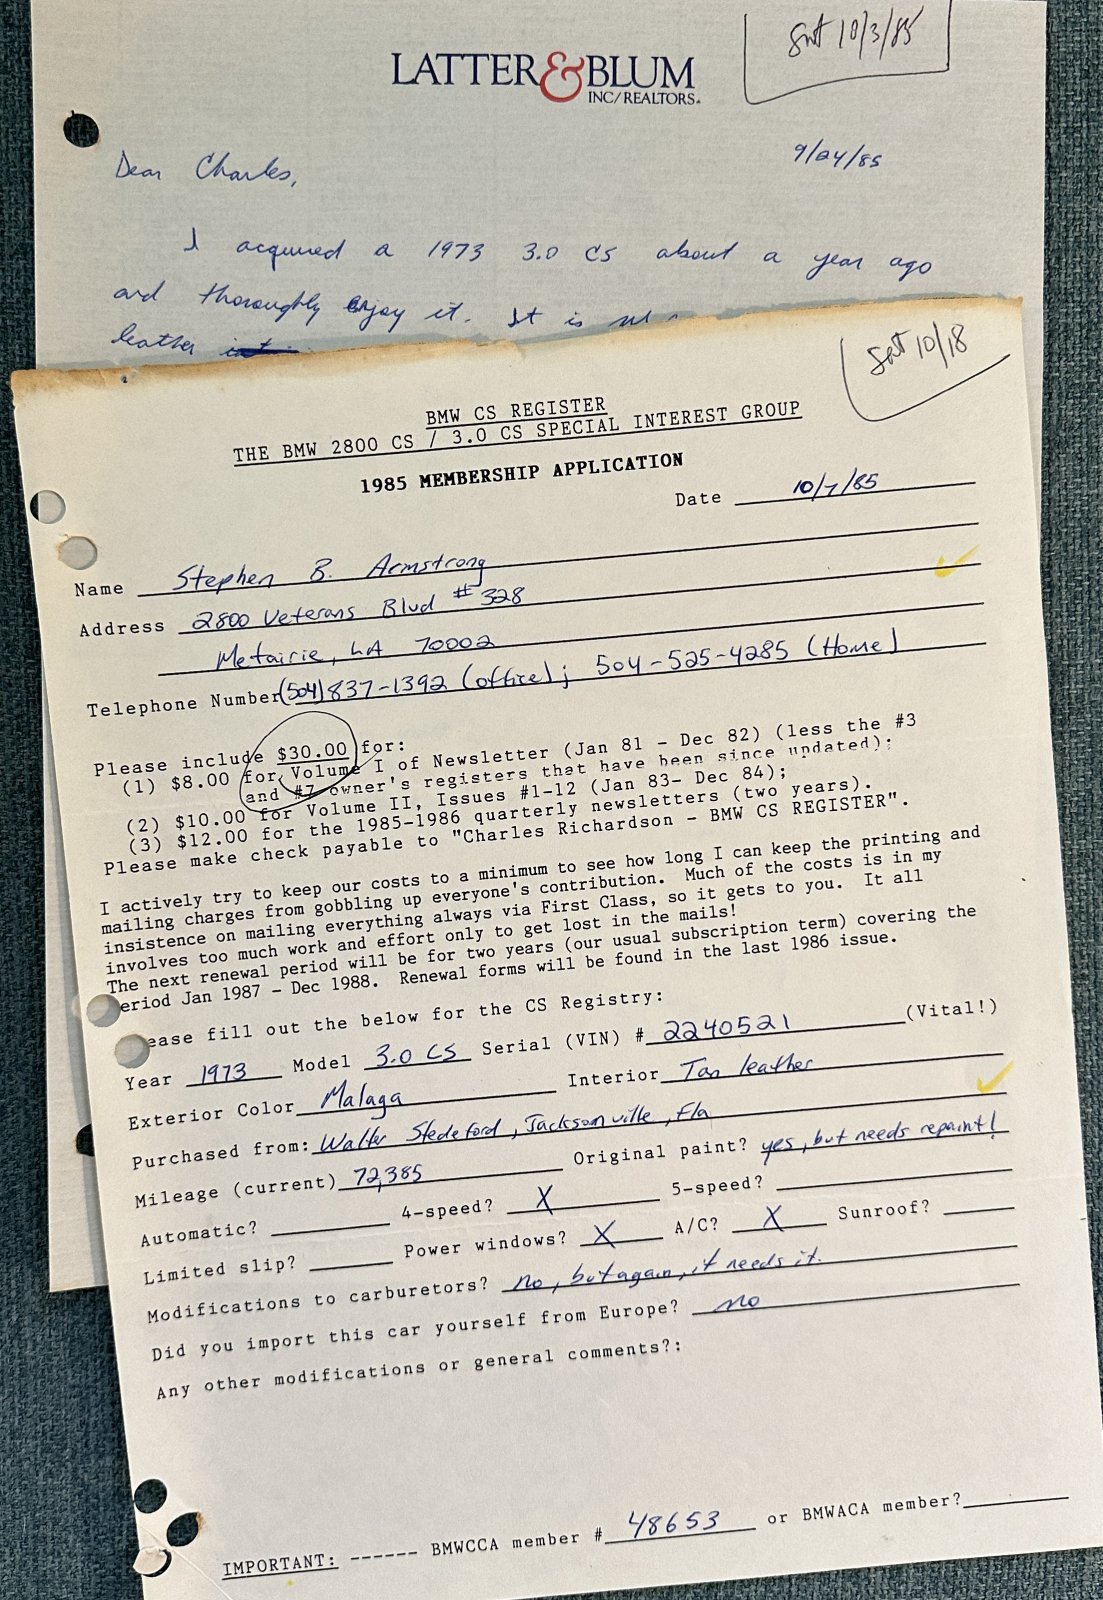 Sat 10/3/85
LATTER & BLUM
INC/REALTORS.
9/24/85
Dear Charles,
I acquired a 1973 3.0 CS about a year ago
and thoroughly enjoy it. It is
leather
Sat 10/18
BMW CS REGISTER
THE BMW 2800 CS / 3.0 CS SPECIAL INTEREST GROUP
1985 MEMBERSHIP APPLICATION
Date 10/7/85
Name Stephen B. Armstrong
Address 2800 Veterans Blvd #328
Metairie, LA 70002
Telephone Number (504) 837-1392 (office); 504-525-4285 (Home)
Please include $30.00 for:
(1) $8.00 for Volume I of Newsletter (Jan 81 - Dec 82) (less the #3
and #7 owner's registers that have been since updated);
(2) $10.00 for Volume II, Issues #1-12 (Jan 83- Dec 84);
(3) $12.00 for the 1985-1986 quarterly newsletters (two years).
Please make check payable to "Charles Richardson - BMW CS REGISTER".
I actively try to keep our costs to a minimum to see how long I can keep the printing and
mailing charges from gobbling up everyone's contribution. Much of the costs is in my
insistence on mailing everything always via First Class, so it gets to you. It all
involves too much work and effort only to get lost in the mails!
The next renewal period will be for two years (our usual subscription term) covering the
eriod Jan 1987 - Dec 1988. Renewal forms will be found in the last 1986 issue.
ease fill out the below for the CS Registry:
Year 1973 Model 3.0 CS Serial (VIN) # 2240521 (Vital!)
Exterior Color Malaga Interior Tan leather
Purchased from: Walter Stedeford, Jacksonville, Fla
Mileage (current) 72,385 Original paint? yes, but needs repaint!
Automatic? 4-speed? X 5-speed?
Limited slip? Power windows? X A/C? X Sunroof?
Modifications to carburetors? no, but again, it needs it.
Did you import this car yourself from Europe? no
Any other modifications or general comments?:
IMPORTANT: ------ BMWCCA member # 48653 or BMWACA member?